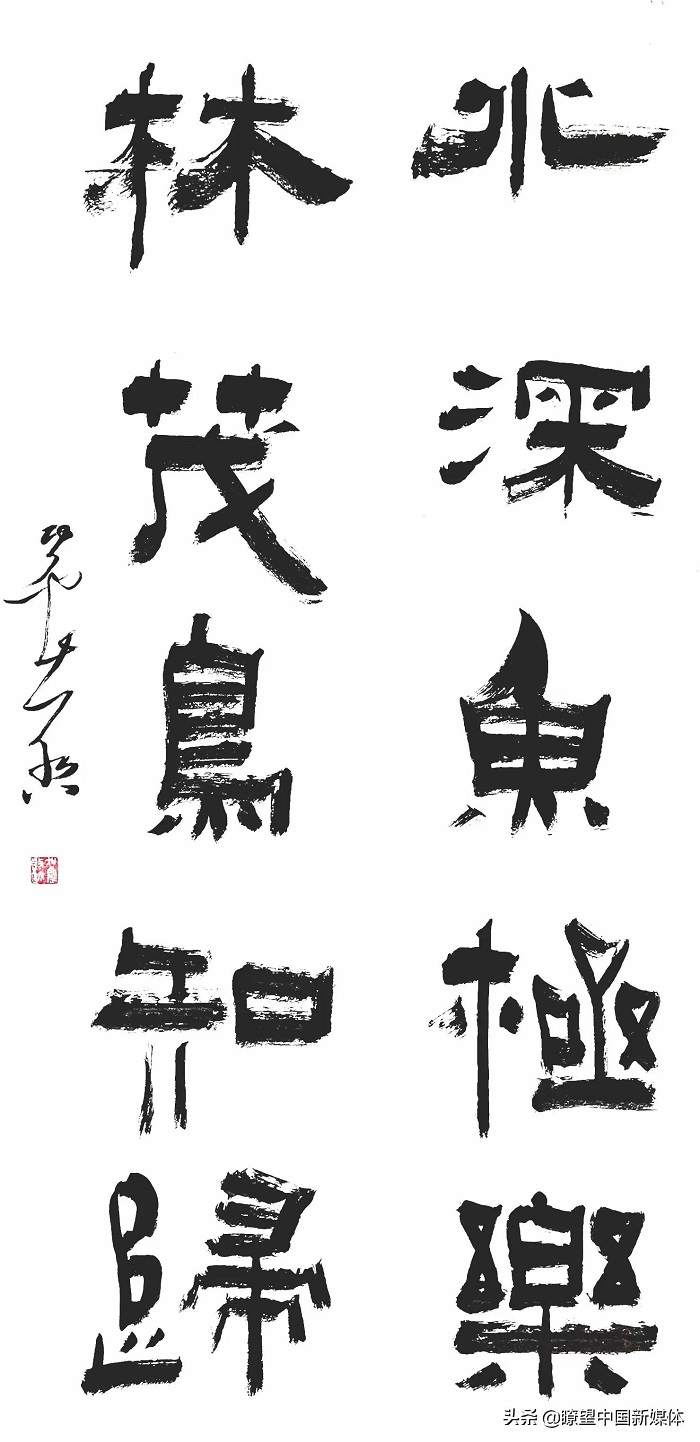 水深魚極樂
林茂鳥知歸
头条 @瞭望中国新媒体